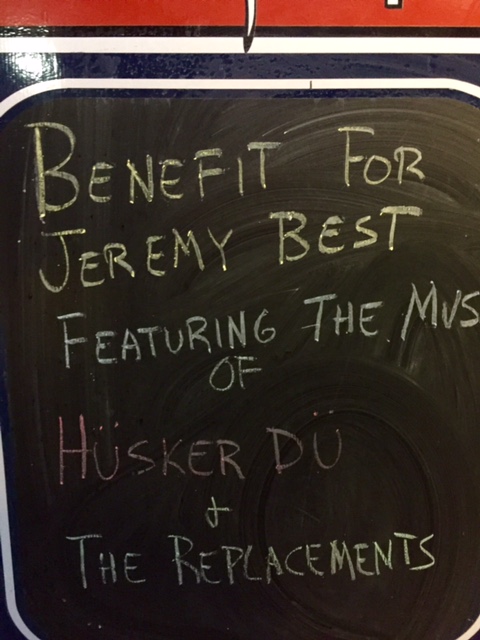 BENEFIT FOR
JEREMY BEST
FEATURING THE MUS
OF
HÜSKER DÜ
+
THE REPLACEMENTS